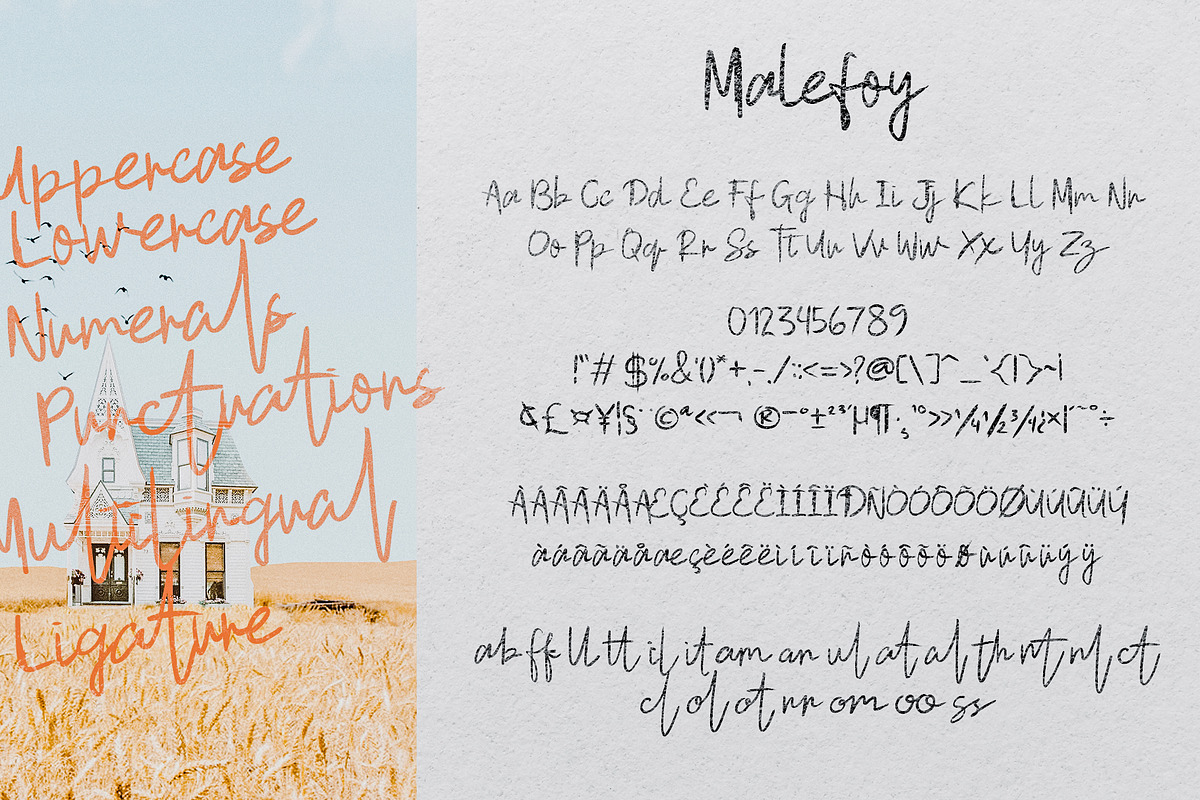 Uppercase
Lowercase
Numerals
Punctuations
Multilingual
Ligature
Malefoy
Aa Bb Cc Dd Ee Ff Gg Hh Ii Jj Kk Ll Mm Nn
Oo Pp Qq Rr Ss Tt Uu Vv Ww Xx Yy Zz
0123456789
!"#$%&'()*+,-./:;<=>?@[\]^_`{|}~¡
¢£¤¥¦§¨©ª«¬®¯°±²³´µ¶·¸¹º»¼½¾¿×|´¯°÷
ÀÁÂÃÄÅÆÇÈÉÊËÌÍÎÏÐÑÒÓÔÕÖØÙÚÛÜÝ
àáâãäåæçèéêëìíîïñòóôõöøùúûüýÿ
ab ff ll tt il it am an ul at al th nt nl ct
cl ol ot rr om oo ss